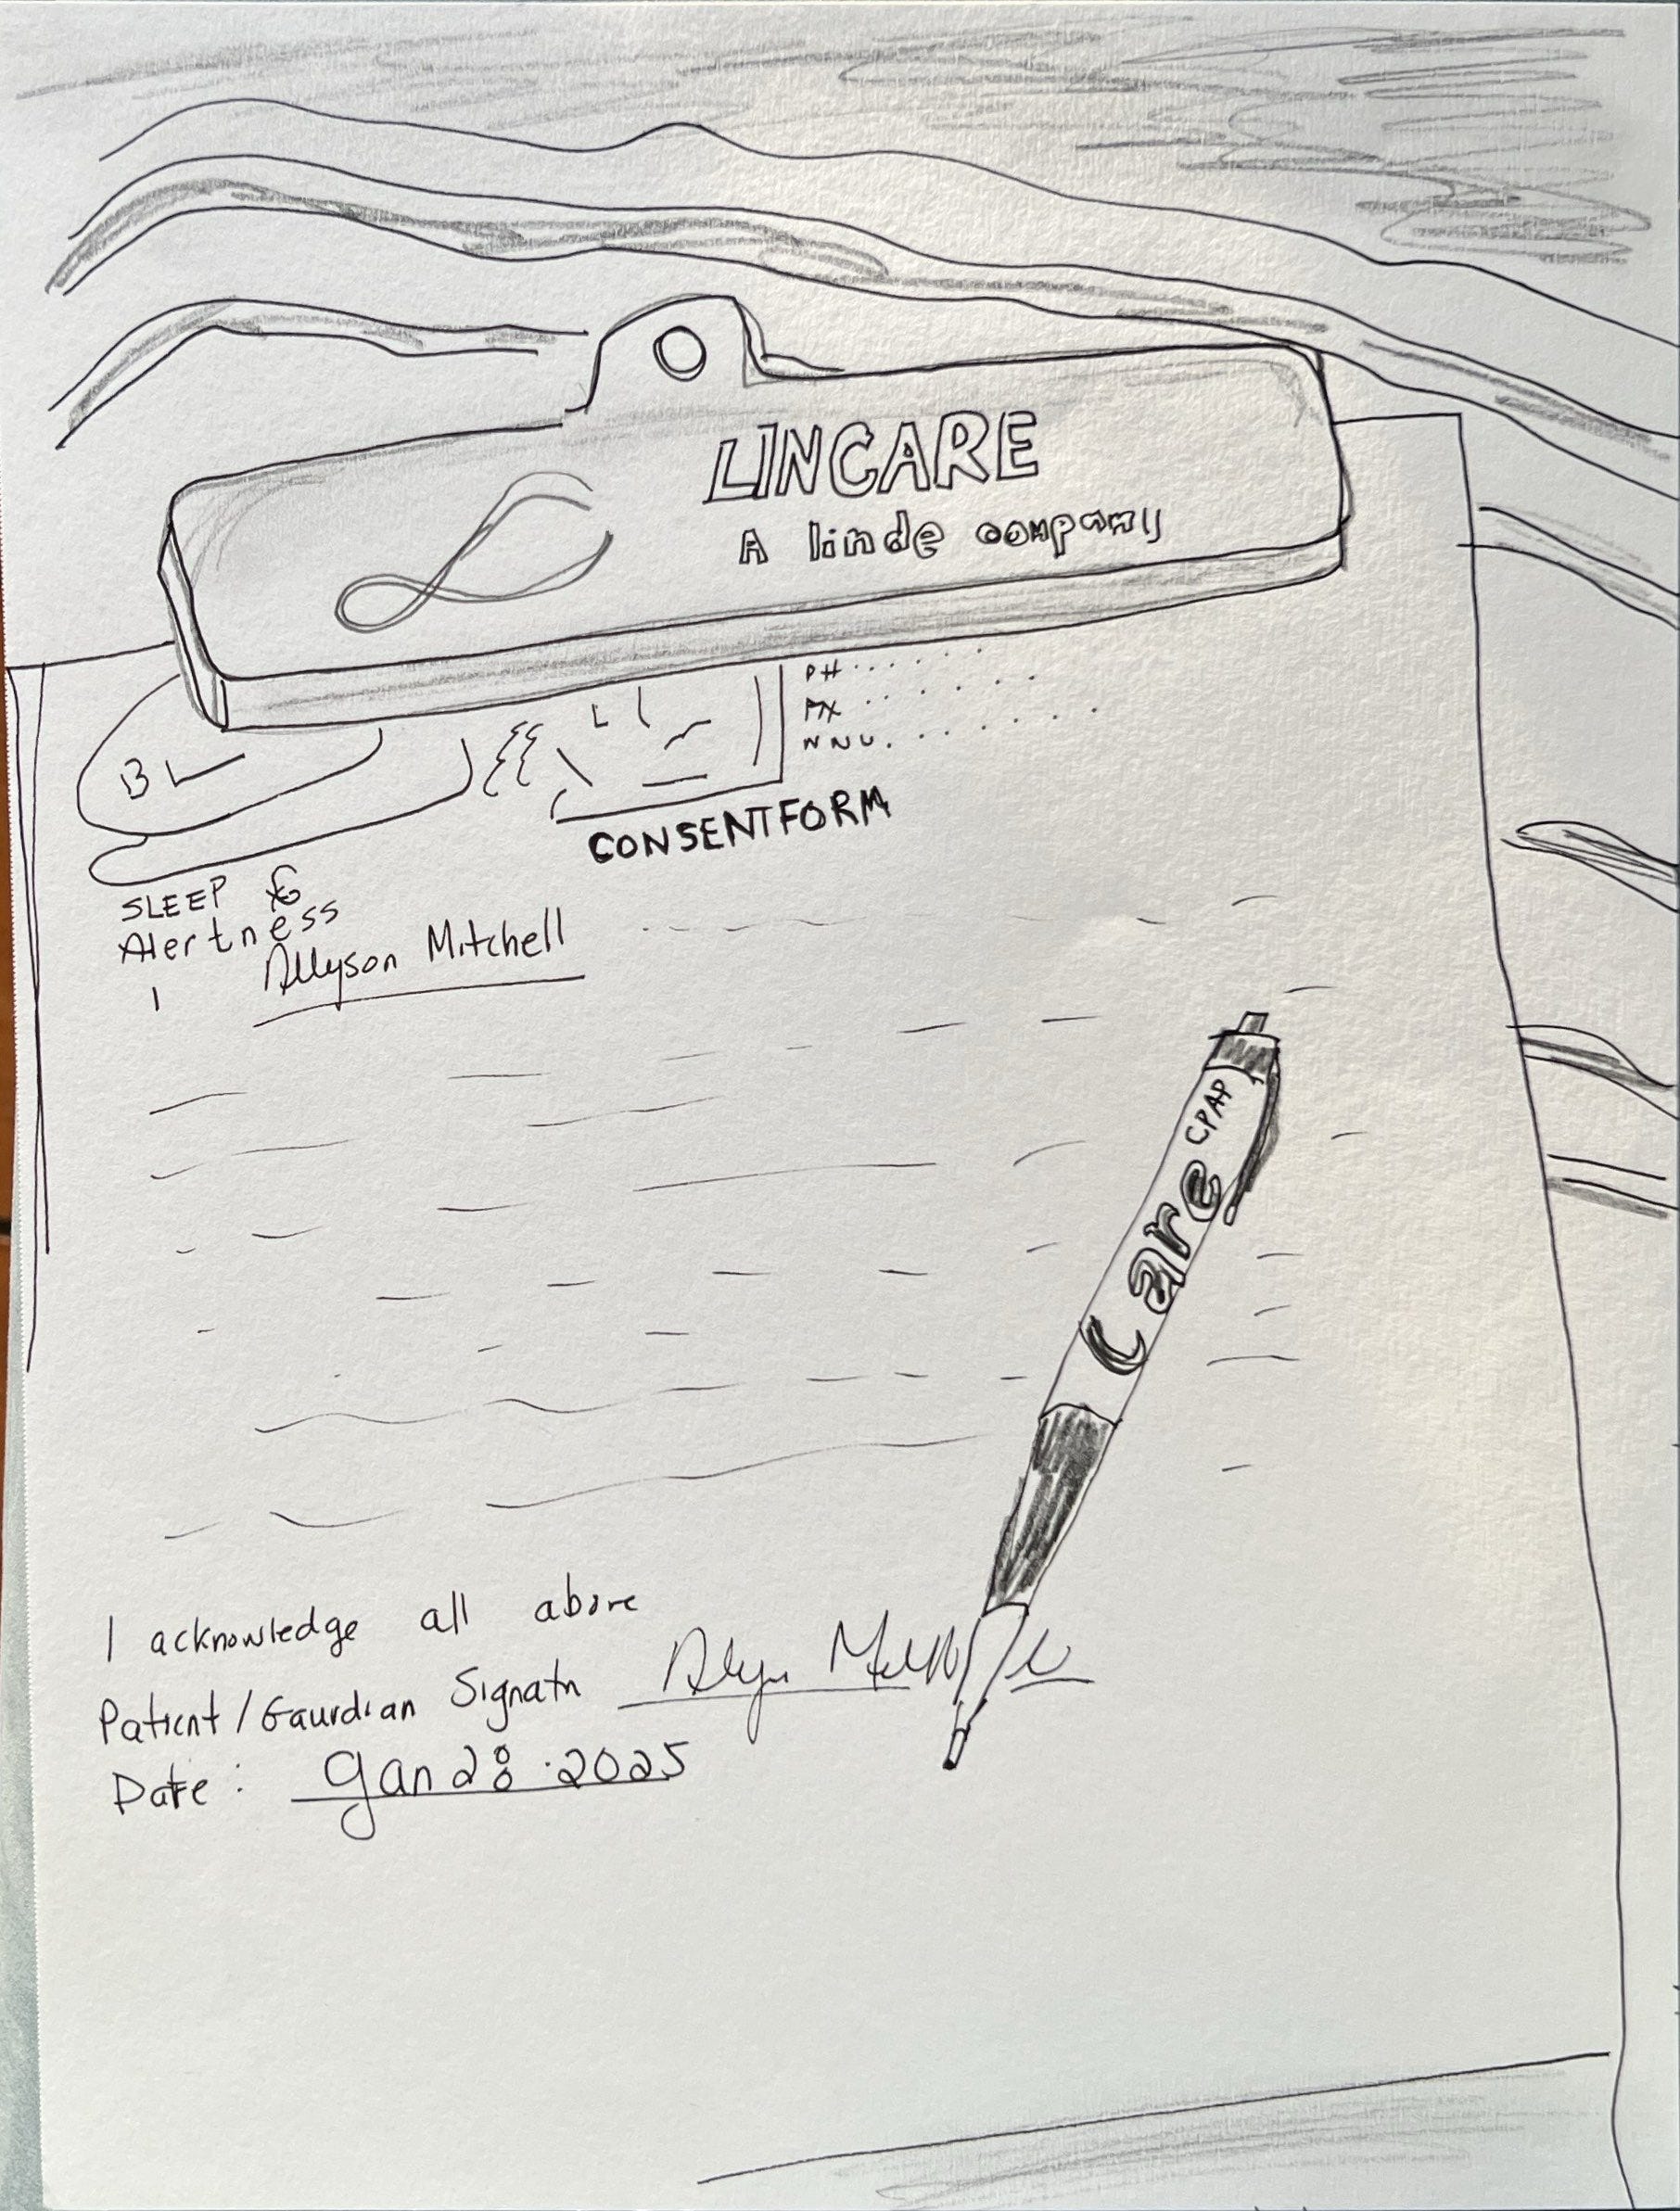 LINCARE
A linde company
PH
WWW
CONSENT FORM
SLEEP &
Alertness
I Allyson Mitchell
Care CPAP
I acknowledge all above
Patient/Gaurdian Signatn
Date: Jan 28 · 2025